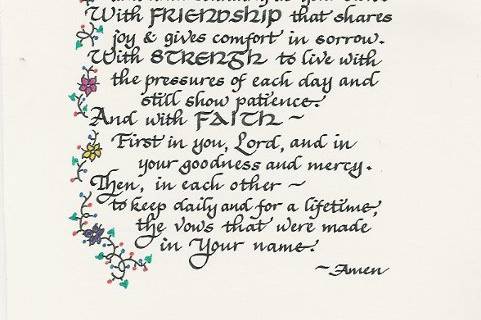 With FRIENDSHIP that shares
joy & gives comfort in sorrow.
With STRENGTH to live with
the pressures of each day and
still show patience.
And with FAITH ~
First in you, Lord, and in
your goodness and mercy.
Then, in each other ~
to keep daily and for a lifetime,
the vows that were made
in Your name.
~Amen